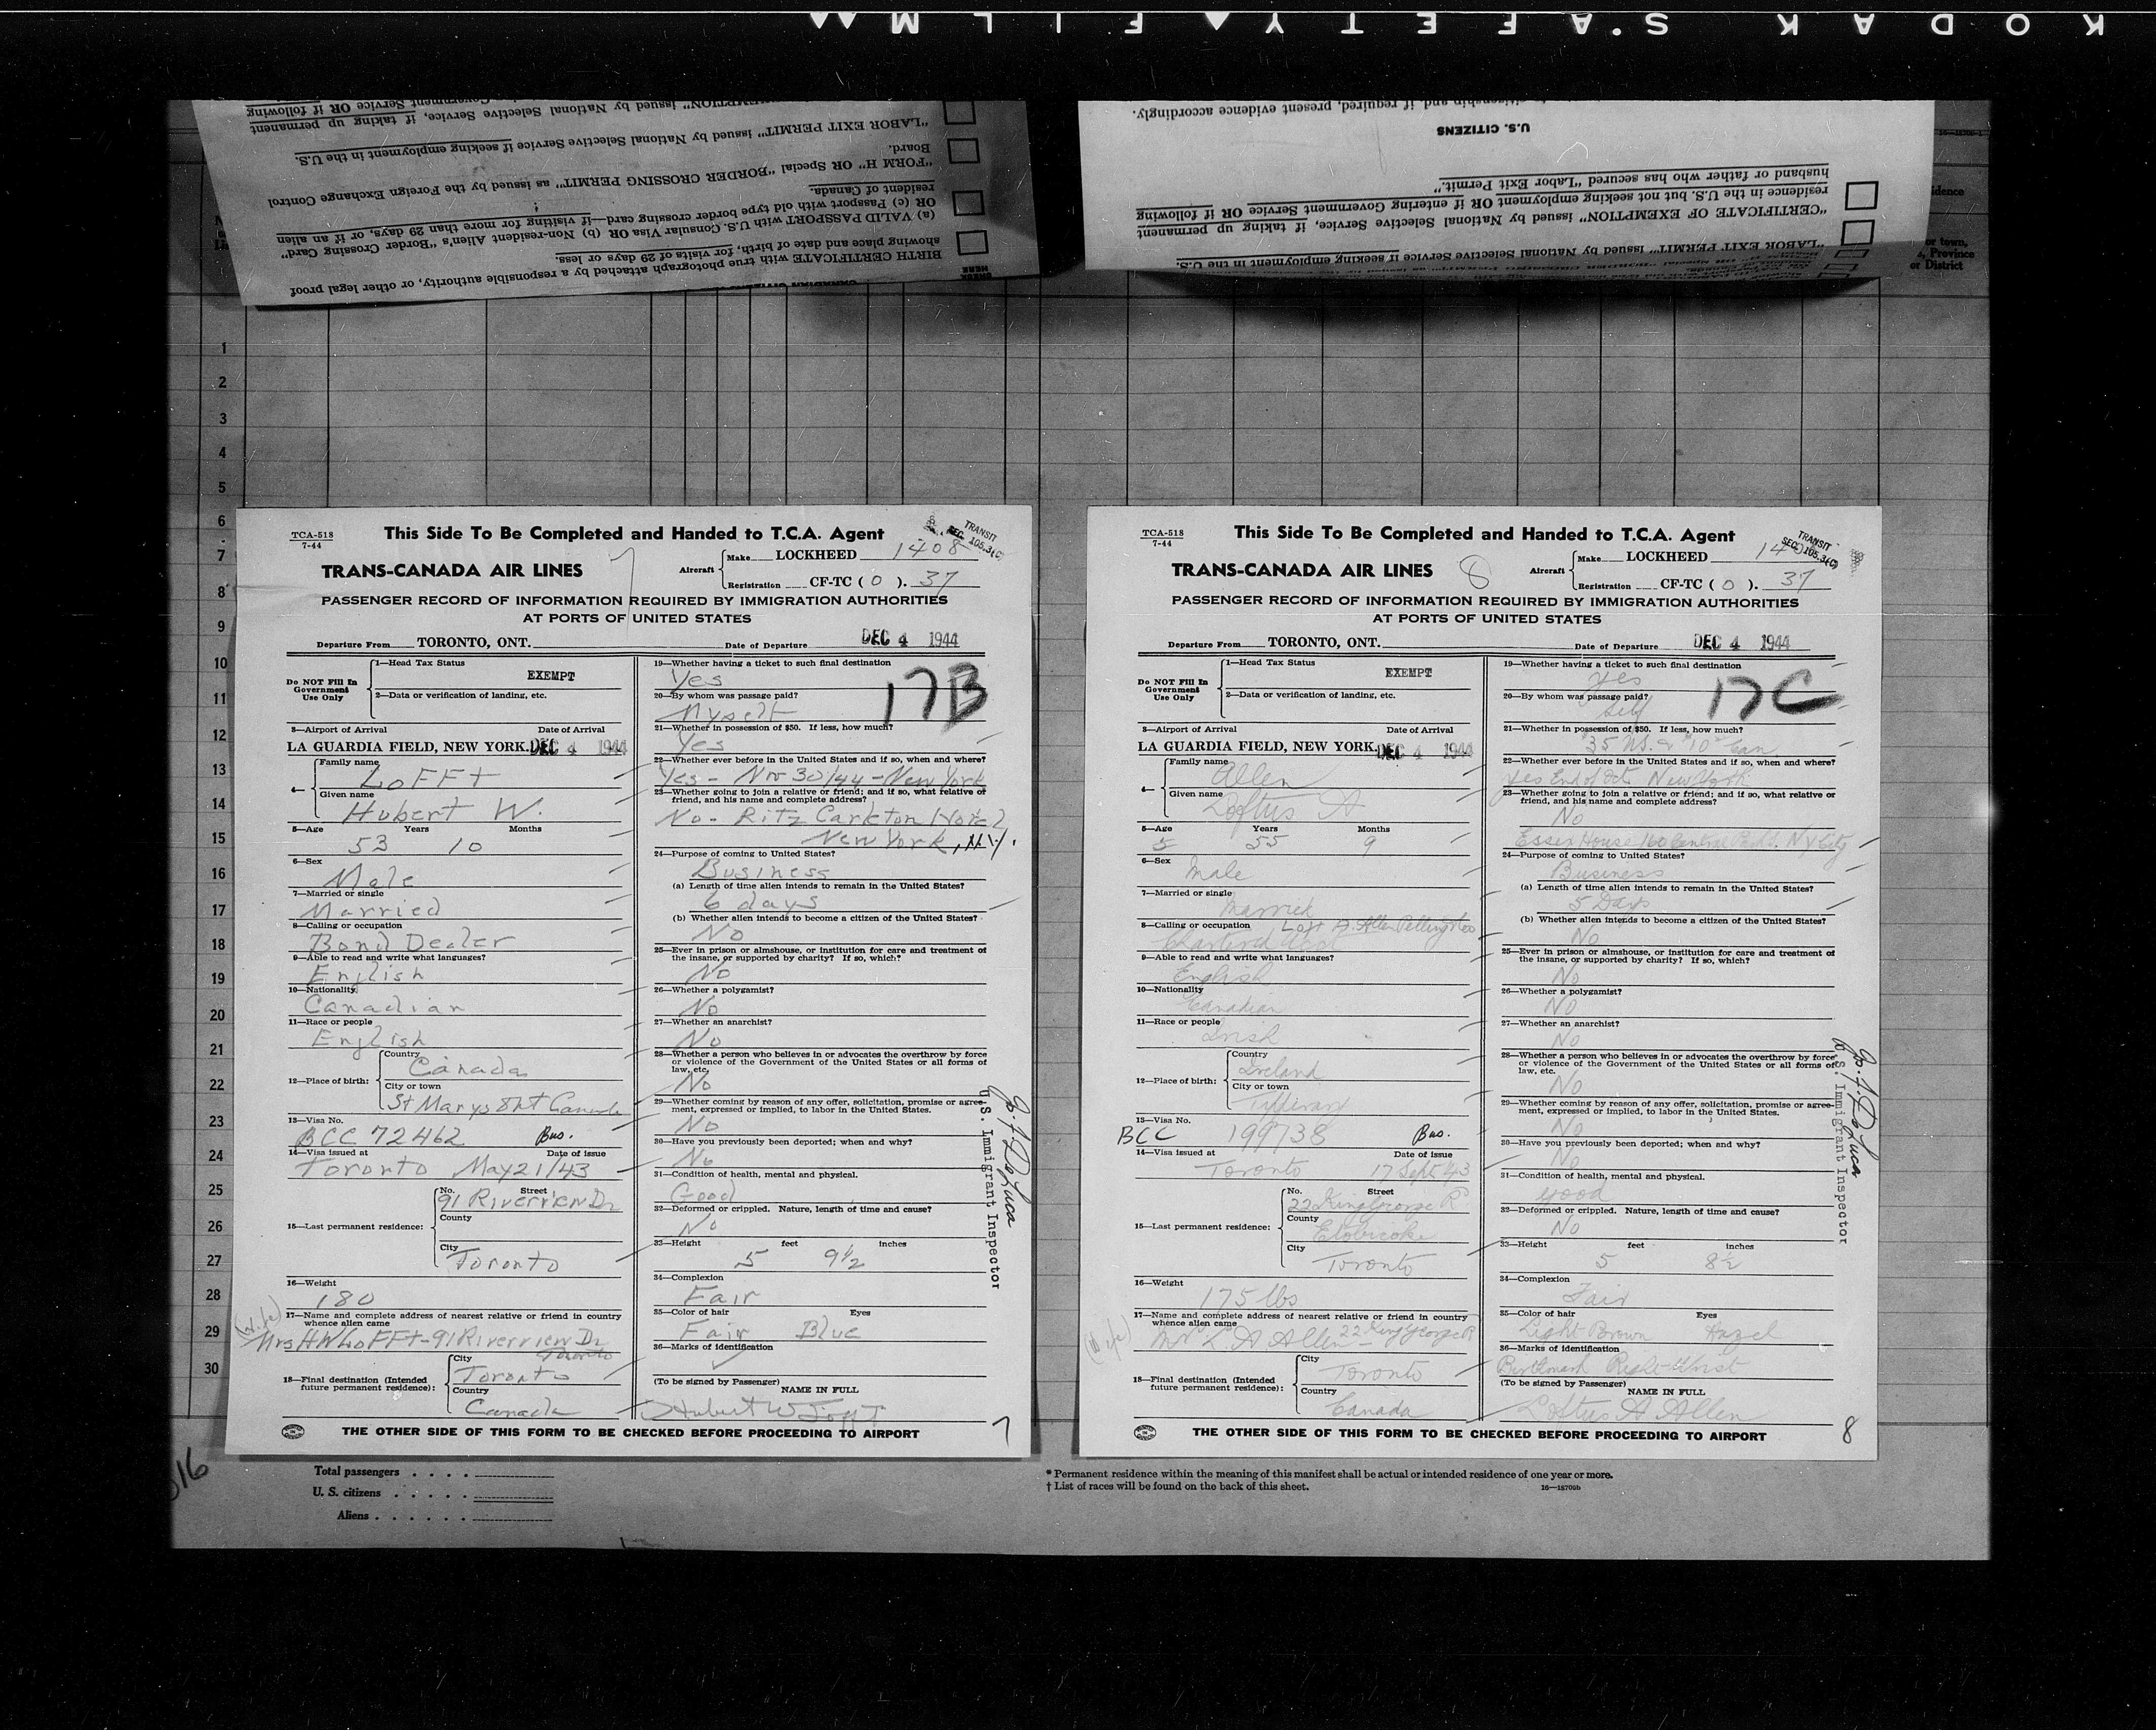 KODAK SAFETY FILM
"CERTIFICATE OF EXEMPTION" issued by National Selective Service, if taking up permanent
"LABOR EXIT PERMIT" issued by National Selective Service if seeking employment in the U.S.
Board.
"FORM H" OR Special "BORDER CROSSING PERMIT" as issued by the Foreign Exchange Control
resident of Canada.
OR (c) Passport with old type border crossing card—if visiting for more than 29 days, or if an alien
(a) VALID PASSPORT with U.S. Consular Visa OR (b) Non-resident Alien's "Border Crossing Card"
showing place and date of birth, for visits of 29 days or less.
BIRTH CERTIFICATE with true photograph attached by a responsible authority, or other legal proof
CHECK HERE
and if required, present evidence accordingly.
U.S. CITIZENS
husband or father who has secured "Labor Exit Permit."
residence in the U.S. but not seeking employment OR if entering Government Service OR if following
"CERTIFICATE OF EXEMPTION" issued by National Selective Service, if taking up permanent
"LABOR EXIT PERMIT" issued by National Selective Service if seeking employment in the U.S.
or town,
Province
or District
1
2
3
4
5
6
7
8
9
10
11
12
13
14
15
16
17
18
19
20
21
22
23
24
25
26
27
28
29
30
TCA-518
7-44
This Side To Be Completed and Handed to T.C.A. Agent
TRANSIT
SEC. 105.3(C)
TRANS-CANADA AIR LINES
7
Aircraft
Make LOCKHEED 1408
Registration CF-TC ( O ). 37
PASSENGER RECORD OF INFORMATION REQUIRED BY IMMIGRATION AUTHORITIES
AT PORTS OF UNITED STATES
Departure From TORONTO, ONT. Date of Departure DEC 4 1944
Do NOT Fill In
Government
Use Only
1—Head Tax Status
EXEMPT
2—Data or verification of landing, etc.
3—Airport of Arrival Date of Arrival
LA GUARDIA FIELD, NEW YORK. DEC 4 1944
4—
Family name
LoFFt
Given name
Hubert W.
5—Age Years Months
53 10
6—Sex
Male
7—Married or single
Married
8—Calling or occupation
Bond Dealer
9—Able to read and write what languages?
English
10—Nationality
Canadian
11—Race or people
English
12—Place of birth:
Country
Canada
City or town
St Marys Ont Canada
13—Visa No.
BCC 72462 Bus.
14—Visa issued at Date of issue
Toronto May 21/43
15—Last permanent residence:
No. Street
91 Riverview Dr
County
City
Toronto
16—Weight
180
17—Name and complete address of nearest relative or friend in country
whence alien came
(Wife)
Mrs HW LoFFt - 91 Riverview Dr
Toronto
18—Final destination (Intended
future permanent residence):
City
Toronto
Country
Canada
19—Whether having a ticket to such final destination
Yes
17B
20—By whom was passage paid?
Myself
21—Whether in possession of $50. If less, how much?
Yes
22—Whether ever before in the United States and if so, when and where?
Yes - Nov 30/44 - New York
23—Whether going to join a relative or friend; and if so, what relative or
friend, and his name and complete address?
No - Ritz Carlton Hotel
New York, N.Y.
24—Purpose of coming to United States?
Business
(a) Length of time alien intends to remain in the United States?
6 days
(b) Whether alien intends to become a citizen of the United States?
No
25—Ever in prison or almshouse, or institution for care and treatment of
the insane, or supported by charity? If so, which?
No
26—Whether a polygamist?
No
27—Whether an anarchist?
No
28—Whether a person who believes in or advocates the overthrow by force
or violence of the Government of the United States or all forms of
law, etc.
No
29—Whether coming by reason of any offer, solicitation, promise or agree-
ment, expressed or implied, to labor in the United States.
No
30—Have you previously been deported; when and why?
No
31—Condition of health, mental and physical.
Good
32—Deformed or crippled. Nature, length of time and cause?
No
33—Height feet inches
5 9½
34—Complexion
Fair
35—Color of hair Eyes
Fair Blue
36—Marks of identification
(To be signed by Passenger)
NAME IN FULL
Hubert W Lofft
U.S. Immigrant Inspector
THE OTHER SIDE OF THIS FORM TO BE CHECKED BEFORE PROCEEDING TO AIRPORT
7
TCA-518
7-44
This Side To Be Completed and Handed to T.C.A. Agent
TRANSIT
SEC. 105.3(C)
TRANS-CANADA AIR LINES
8
Aircraft
Make LOCKHEED
Registration CF-TC ( O ). 37
PASSENGER RECORD OF INFORMATION REQUIRED BY IMMIGRATION AUTHORITIES
AT PORTS OF UNITED STATES
Departure From TORONTO, ONT. Date of Departure DEC 4 1944
Do NOT Fill In
Government
Use Only
1—Head Tax Status
EXEMPT
2—Data or verification of landing, etc.
3—Airport of Arrival Date of Arrival
LA GUARDIA FIELD, NEW YORK. DEC 4 1944
4—
Family name
Allen
Given name
Loftus A
5—Age Years Months
55 9
6—Sex
Male
7—Married or single
Married
8—Calling or occupation
9—Able to read and write what languages?
English
10—Nationality
Canadian
11—Race or people
Irish
12—Place of birth:
Country
Ireland
City or town
13—Visa No.
BCC 199738 Bus.
14—Visa issued at Date of issue
Toronto 17 Sept 43
15—Last permanent residence:
No. Street
22 King George Rd
County
Etobicoke
City
Toronto
16—Weight
175 lbs
17—Name and complete address of nearest relative or friend in country
whence alien came
(Wife)
Mrs L. A Allen - 22 King George R
18—Final destination (Intended
future permanent residence):
City
Toronto
Country
Canada
19—Whether having a ticket to such final destination
Yes
17C
20—By whom was passage paid?
Self
21—Whether in possession of $50. If less, how much?
$35 US. & $10 Can
22—Whether ever before in the United States and if so, when and where?
Yes End of Oct New York
23—Whether going to join a relative or friend; and if so, what relative or
friend, and his name and complete address?
No
Essex House 160 Central Pk. N Y City
24—Purpose of coming to United States?
Business
(a) Length of time alien intends to remain in the United States?
5 Days
(b) Whether alien intends to become a citizen of the United States?
No
25—Ever in prison or almshouse, or institution for care and treatment of
the insane, or supported by charity? If so, which?
No
26—Whether a polygamist?
No
27—Whether an anarchist?
No
28—Whether a person who believes in or advocates the overthrow by force
or violence of the Government of the United States or all forms of
law, etc.
No
29—Whether coming by reason of any offer, solicitation, promise or agree-
ment, expressed or implied, to labor in the United States.
No
30—Have you previously been deported; when and why?
No
31—Condition of health, mental and physical.
Good
32—Deformed or crippled. Nature, length of time and cause?
No
33—Height feet inches
5 8½
34—Complexion
Fair
35—Color of hair Eyes
Light Brown Hazel
36—Marks of identification
Birthmark Right Wrist
(To be signed by Passenger)
NAME IN FULL
Loftus A Allen
U.S. Immigrant Inspector
THE OTHER SIDE OF THIS FORM TO BE CHECKED BEFORE PROCEEDING TO AIRPORT
8
Total passengers
U. S. citizens
Aliens
* Permanent residence within the meaning of this manifest shall be actual or intended residence of one year or more.
† List of races will be found on the back of this sheet.
16—18700b